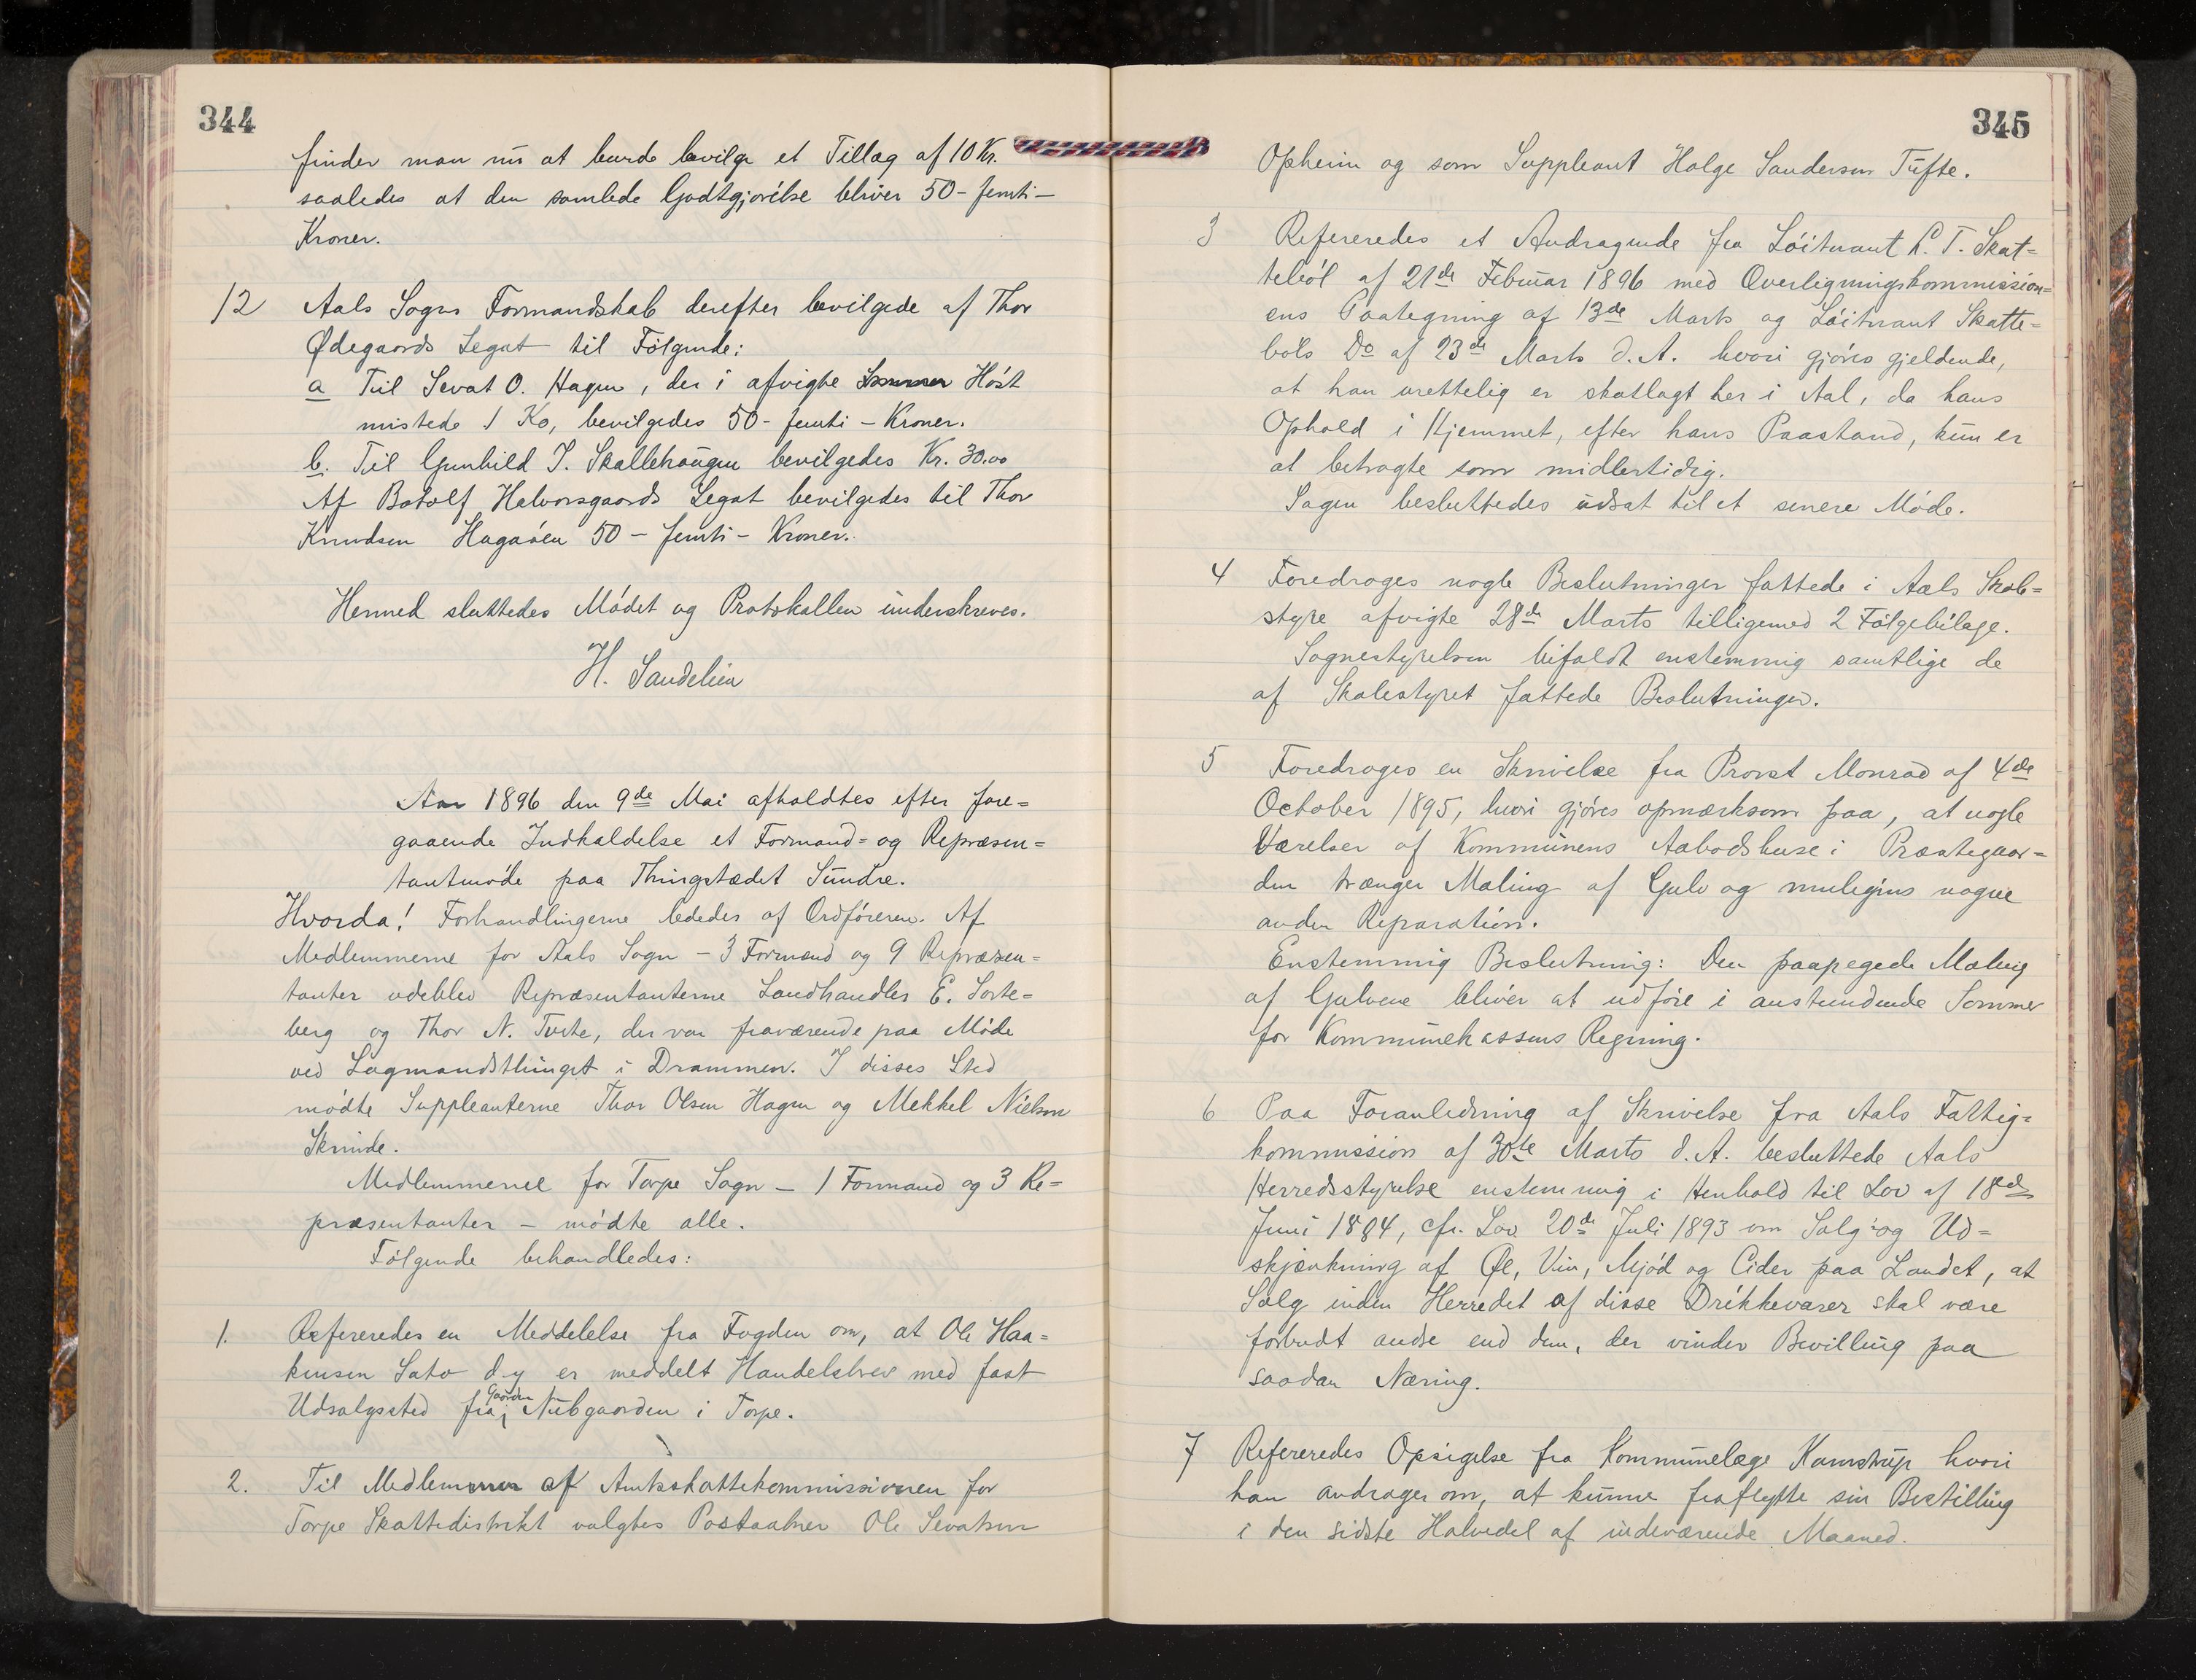 344
finder man nu at burde bevilge et Tillæg af 10 Kr.
saaledes at den samlede Godtgjørelse bliver 50 - femti -
Kroner.
12 Aals Sogns Formandskab derefter bevilgede af Thor
Ødegaards Legat til Følgende:
a Til Sevat O. Hagen, der i afvigte Høst
mistede 1 Ko, bevilgedes 50 - femti - Kroner.
b. Til Gunhild T. Skallehaugen bevilgedes Kr. 30.00
Af Botolf Halvorsgaards Legat bevilgedes til Thor
Knudsen Hagaøen 50 - femti - Kroner.
Hermed sluttedes Mødet og Protokollen underskreves.
H. Sandelien
Aar 1896 den 9de Mai afholdtes efter fore=
gaaende Indkaldelse et Formand= og Repræsen=
tantmøde paa Thingstedet Sundre.
Hvorda! Forhandlingerne lededes af Ordføreren. Af
Medlemmerne for Aals Sogn - 3 Formænd og 9 Repræsen=
tanter udeblev Repræsentanterne Landhandler E. Sorte=
berg og Thor N. Tveto, der var fraværende paa Møde
ved Lagmandsthinget i Drammen. I disses Sted
mødte Suppleanterne Thor Olsen Hagen og Mekkel Nielsen
Skrinde.
Medlemmerne for Torpe Sogn - 1 Formand og 3 Re=
præsentanter - mødte alle.
Følgende behandledes:
1. Refereredes en Meddelelse fra Fogden om, at Ole Haa=
kensen Sato d.y er meddelt Handelsbrev med fast
Udsalgssted fra Gaarden Nubgaarden i Torpe.
2. Til Medlemmer af Amtsskattekommissionen for
Torpe Skattedistrikt valgtes Postaabner Ole Sevatsen
345
Opheim og som Suppleant Helge Sanderson Tufte.
3 Refereredes et Andragende fra Løitnant L. T. Skat=
tebøl af 21de Februar 1896 med Overligningskommission=
ens Paategning af 13de Marts og Løitnant Skatte=
bøls Do af 23de Marts d. A. hvori gjøres gjeldende,
at han urettelig er skatlagt her i Aal, da hans
Ophold i Hjemmet, efter hans Paastand, kun er
at betragte som midlertidig.
Sagen besluttedes udsat til et senere Møde.
4 Foredroges nogle Beslutninger fattede i Aals Skole=
styre afvigte 28de Marts tilligemed 2 Følgebilage.
Sognestyrelsen bifaldt enstemmig samtlige de
af Skolestyret fattede Beslutninger.
5 Foredroges en Skrivelse fra Provst Monrad af 4de
October 1895, hvori gjøres opmærksom paa, at nogle
Værelser af Kommunens Aabodshuse i Præstegaar=
den trænger Maling af Gulv og muligens nogen
anden Reparation.
Enstemmig Beslutning: Den paapegede Maling
af Gulvene bliver at udføre i anstundende Sommer
for Kommunekassens Regning.
6 Paa Foranledning af Skrivelse fra Aals Fattig=
kommission af 30te Marts d. A. besluttede Aals
Herredsstyrelse enstemmig i Henhold til Lov af 18de
Juni 1884, cfr. Lov 20de Juli 1893 om Salg og Ud=
skjænkning af Øl, Vin, Mjød og Cider paa Landet, at
Salg inden Herredet af disse Drikkevarer skal være
forbudt andre end dem, der vinder Bevilling paa
saadan Næring.
7 Refereredes Opsigelse fra Kommunelæge Kamstrup hvori
han andrager om, at kunne fraflytte sin Bestilling
i den sidste Halvedel af indeværende Maaned.